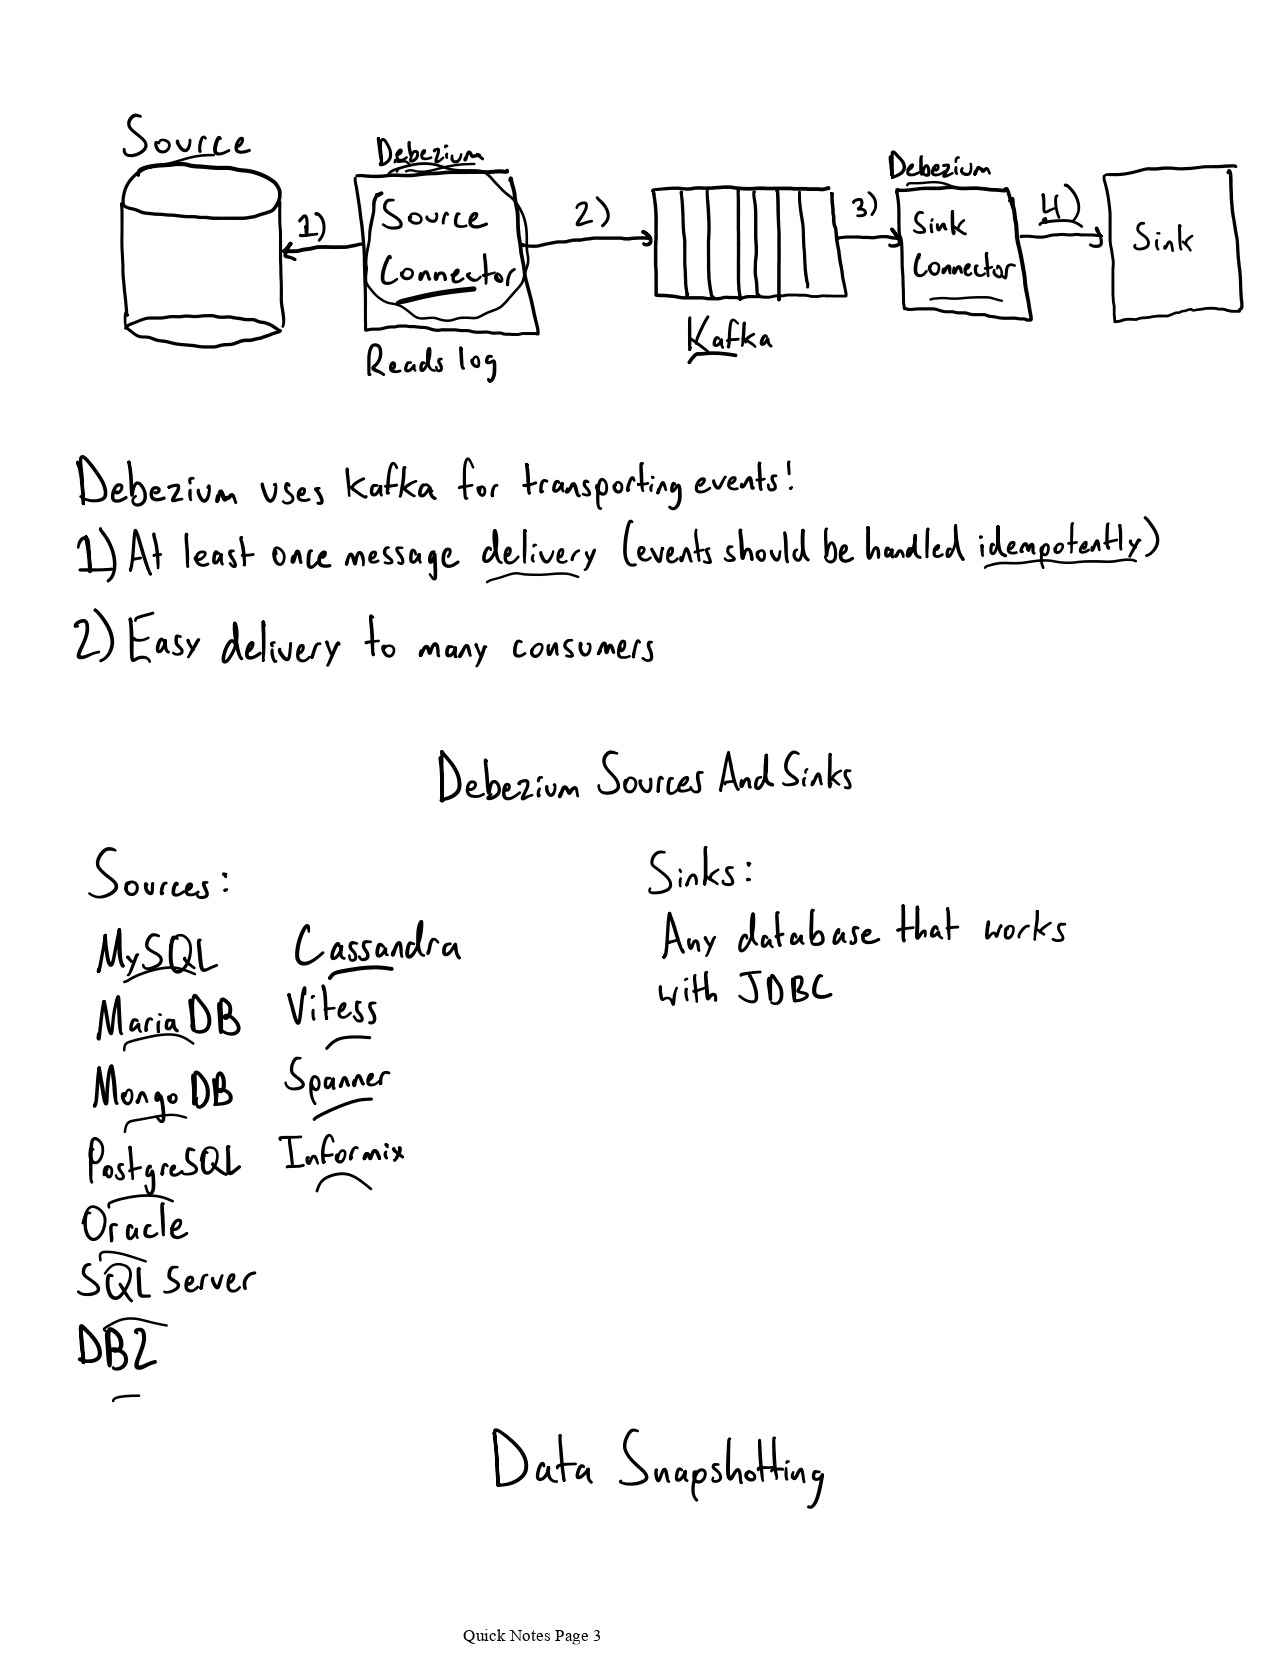 Source
Debezium
Source
Connector
Reads log
1)
2)
Kafka
3)
Debezium
Sink
Connector
4)
Sink
Debezium uses Kafka for transporting events!
1) At least once message delivery (events should be handled idempotently)
2) Easy delivery to many consumers
Debezium Sources And Sinks
Sources:
MySQL
MariaDB
MongoDB
PostgreSQL
Oracle
SQL Server
DB2
Cassandra
Vitess
Spanner
Informix
Sinks:
Any database that works
with JDBC
Data Snapshotting
Quick Notes Page 3